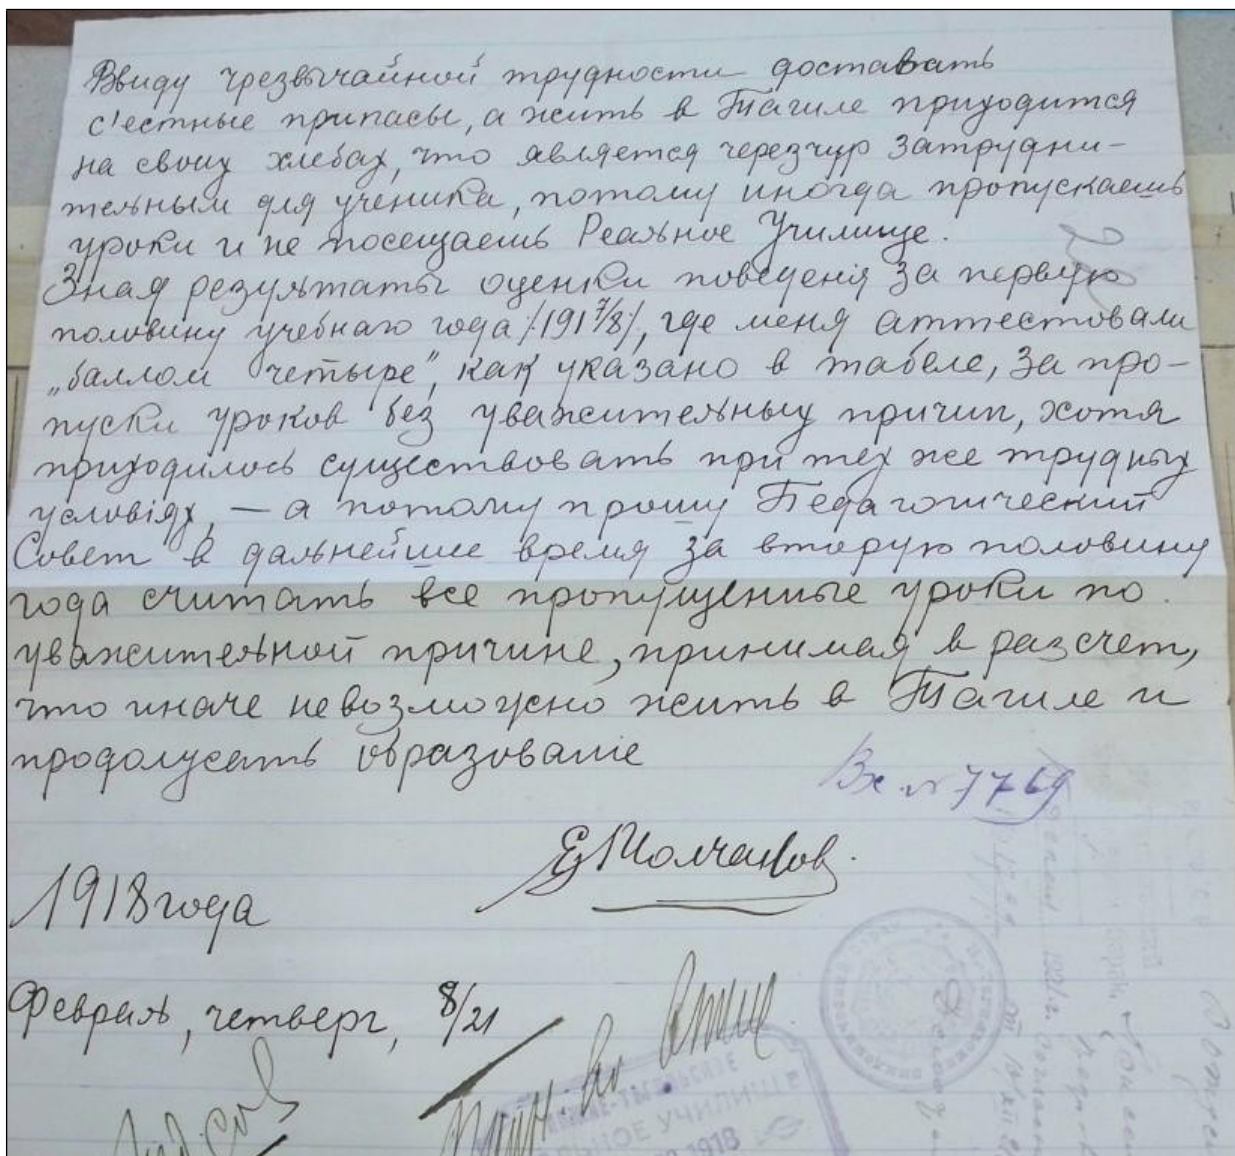 Ввиду чрезвычайной трудности доставать
с'естные припасы, а жить в Тагиле приходится
на своих хлебах, что является черезчур затрудни-
тельным для ученика, потому иногда пропускаешь
уроки и не посещаешь Реальное Училище.
Зная результаты оценки поведенія за первую
половину учебнаго года /191 7/8/, где меня аттестовали
„баллом четыре", как указано в табеле, за про-
пуски уроков без уважительных причин, хотя
приходилось существовать при тех же трудных
условіях, — а потому прошу Педагогический
Совет в дальнейшее время за вторую половину
года считать все пропущенные уроки по
уважительной причине, принимая в разсчет,
что иначе невозможно жить в Тагиле и
продолжать образование
Вх. № 7769
Е Молчанов.
1918 года
Февраль, четверг, 8/21
УЧИЛИЩЕ
1918